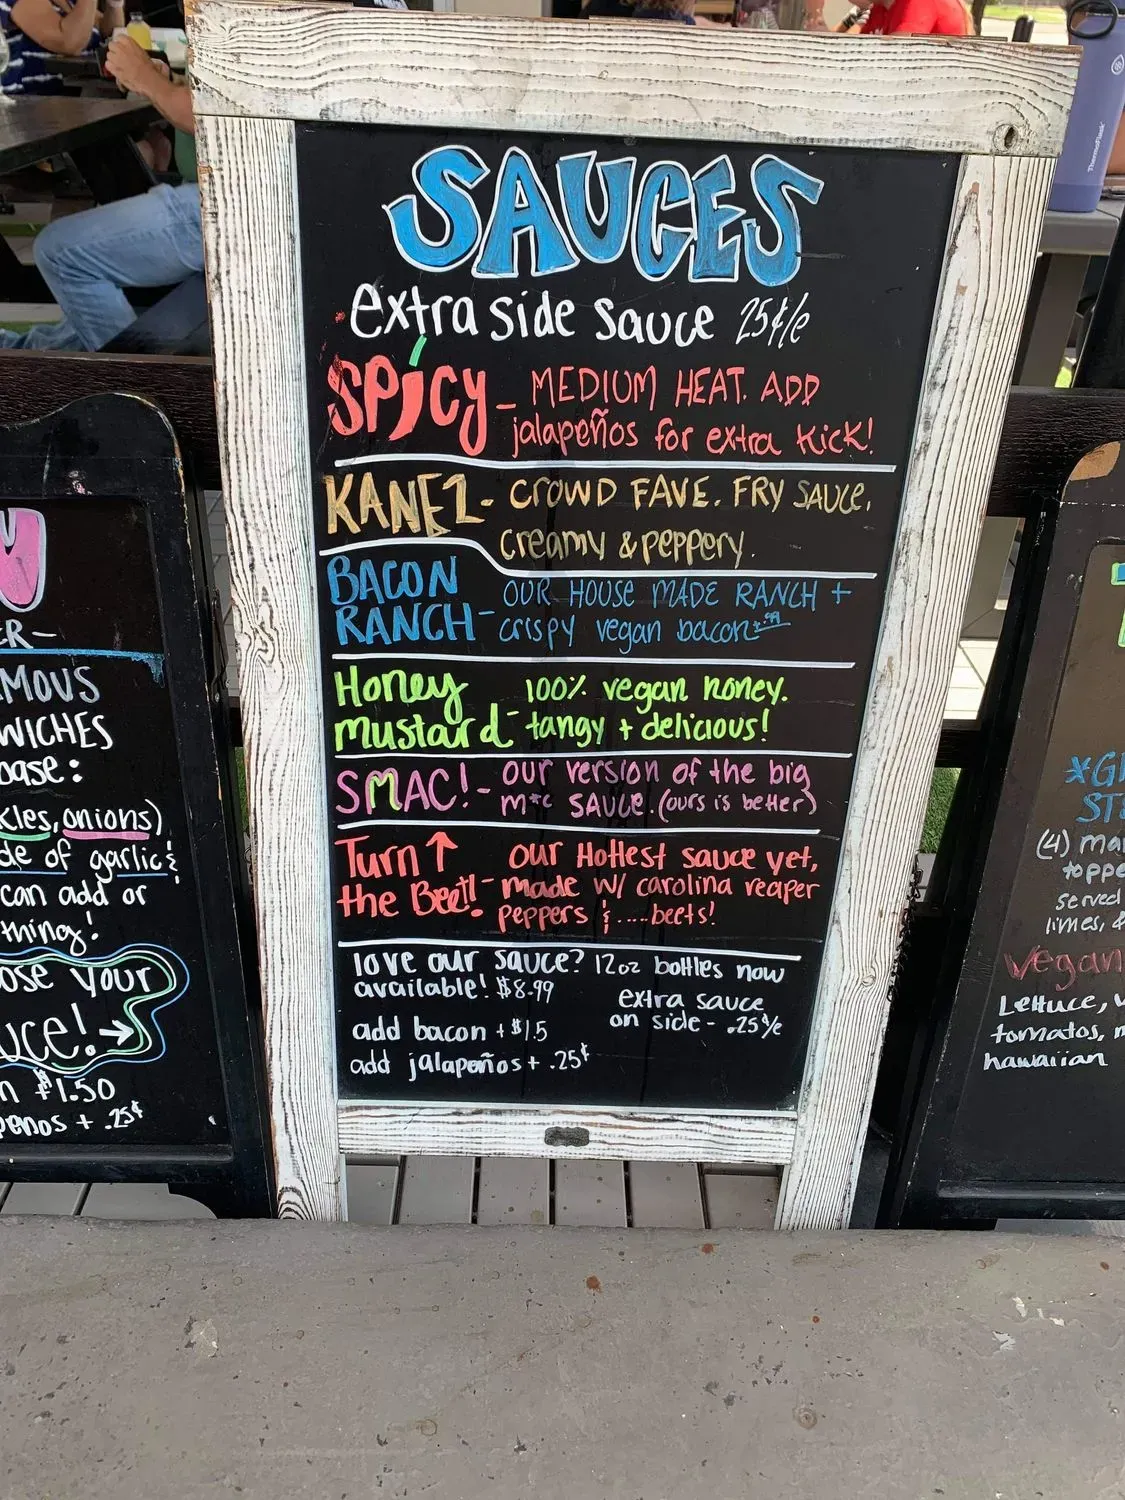 SAUCES
extra side sauce 25¢/e
SPicy - MEDIUM HEAT. ADD
jalapeños for extra kick!
KANEZ - CROWD FAVE. FRY SAUCE,
creamy & peppery.
BACON
RANCH - OUR HOUSE MADE RANCH +
crispy vegan bacon
Honey
mustard - 100% vegan honey.
tangy + delicious!
SMAC! - our version of the big
m*c SAUCE. (ours is better)
Turn ↑
the Beet! - our Hottest sauce yet,
made w/ carolina reaper
peppers & ....beets!
love our sauce? 12oz bottles now
available! $8.99
extra sauce
on side - .25¢/e
add bacon + $1.5
add jalapeños + .25¢
MOUS
WICHES
base:
kles, onions)
de of garlic &
can add or
thing!
ose your
uce! →
n $1.50
penos + .25¢
*G
ST
(4) ma
toppe
served
limes, &
vegan
Lettuce, v
tomatos, m
hawaiian
ThermoFlask